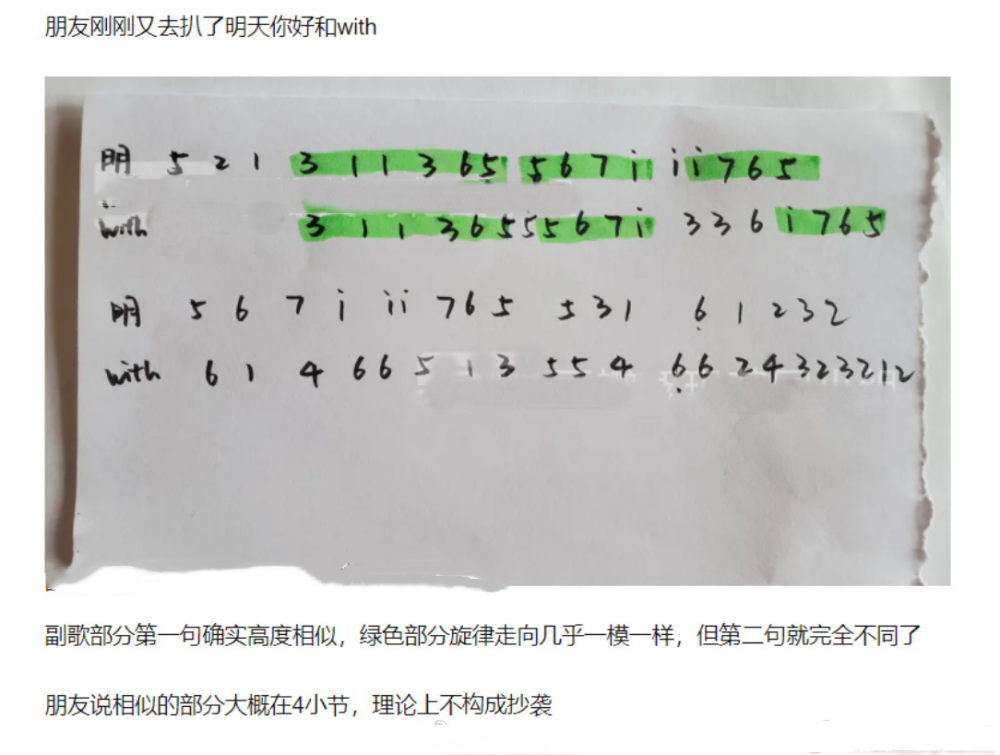 朋友刚刚又去扒了明天你好和with
明 5 2 1 3 1 1 3 6 5 5 6 7 i i i 7 6 5
with 3 1 1 3 6 5 5 5 6 7 i 3 3 6 i 7 6 5
明 5 6 7 i i i 7 6 5 5 3 1 6̣ 1 2 3 2
with 6 1 4 6 6 5 1 3 5 5 4 6̣ 6 2 4 3 2 3 2 1 2
副歌部分第一句确实高度相似，绿色部分旋律走向几乎一模一样，但第二句就完全不同了
朋友说相似的部分大概在4小节，理论上不构成抄袭